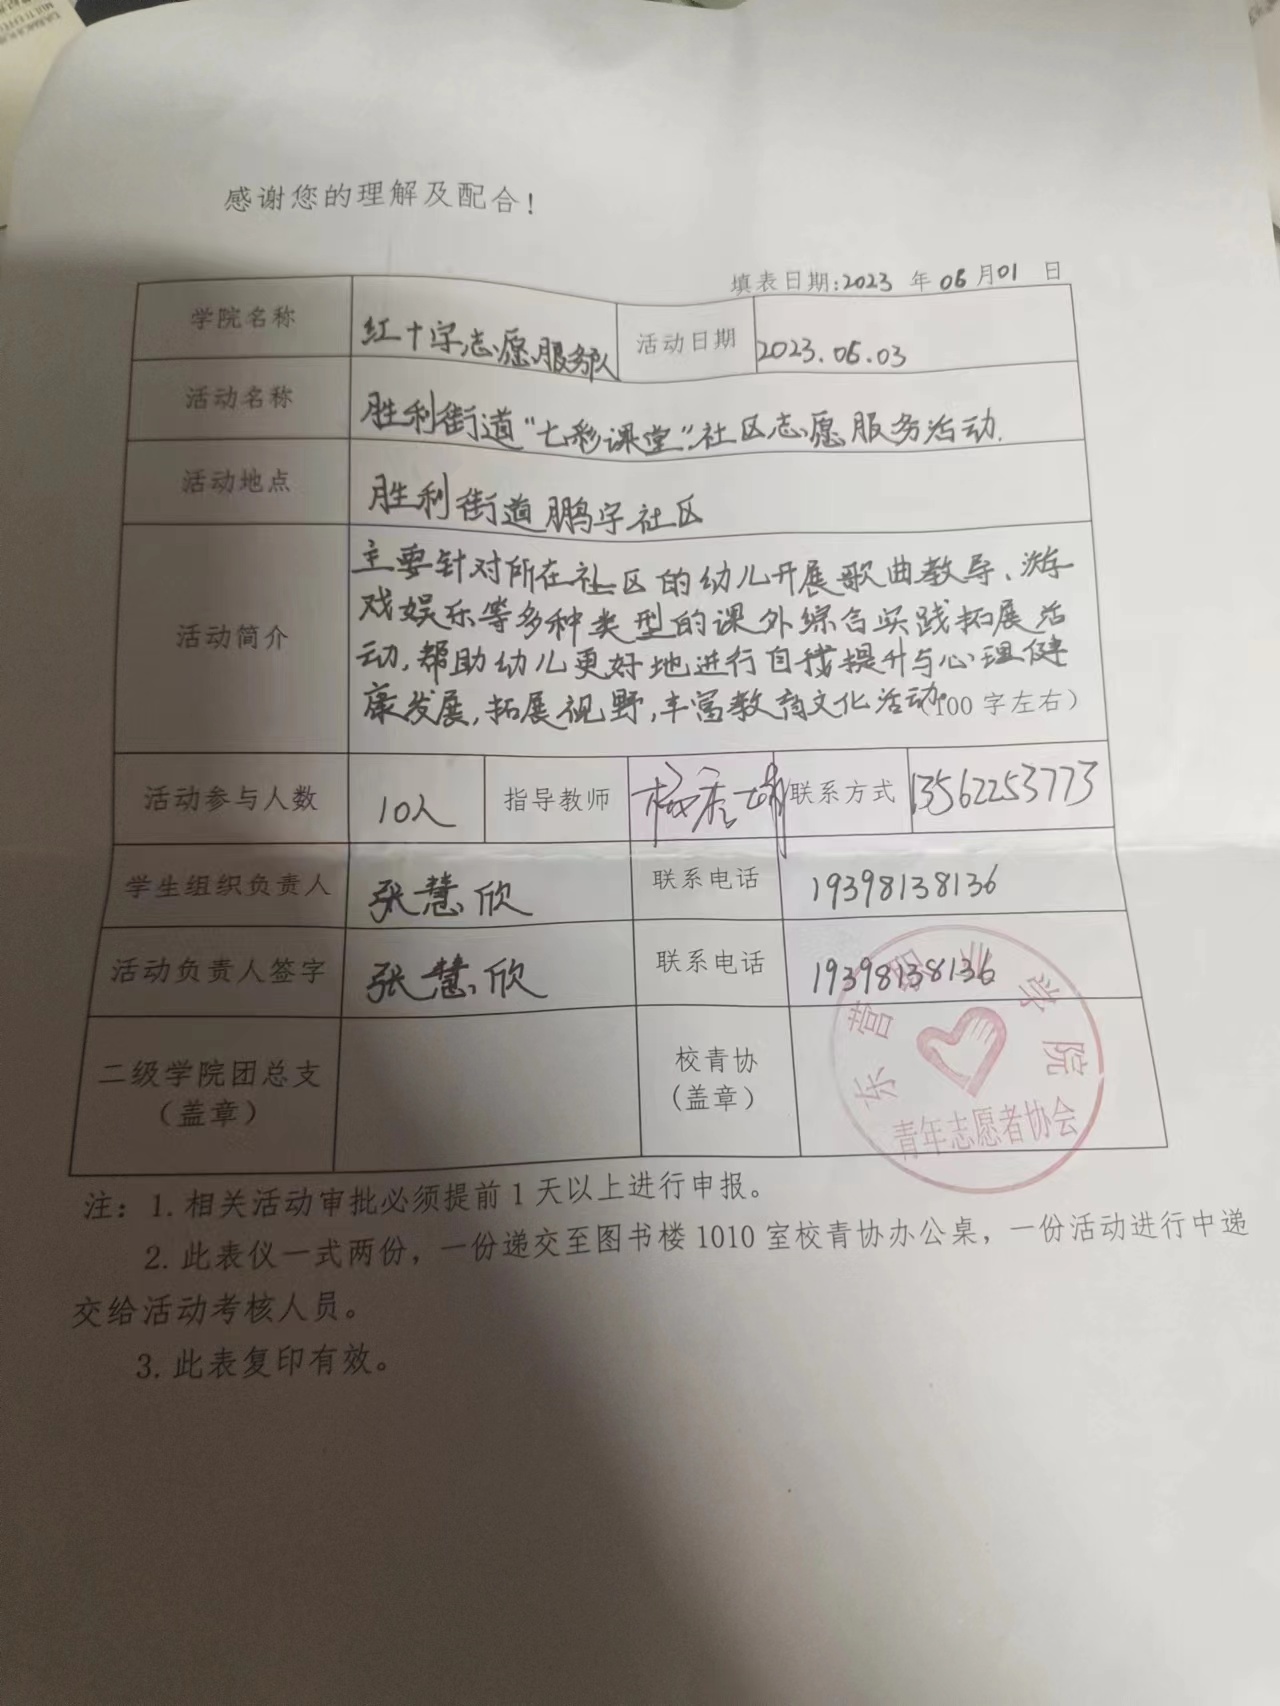 感谢您的理解及配合!
填表日期:2023 年 06 月 01 日
学院名称 红十字志愿服务队 活动日期 2023.06.03
活动名称 胜利街道“七彩课堂”社区志愿服务活动.
活动地点 胜利街道鹏宇社区
活动简介
主要针对所在社区的幼儿开展歌曲教导、游
戏娱乐等多种类型的课外综合实践拓展活
动,帮助幼儿更好地进行自我提升与心理健
康发展,拓展视野,丰富教育文化活动。(100 字左右)
活动参与人数 10人 指导教师 联系方式 13562253773
学生组织负责人 张慧欣 联系电话 19398138136
活动负责人签字 张慧欣 联系电话 19398138136
二级学院团总支
(盖章)
校青协
(盖章)
东营职业学院
青年志愿者协会
注: 1. 相关活动审批必须提前 1 天以上进行申报。
2. 此表仪一式两份,一份递交至图书楼 1010 室校青协办公桌,一份活动进行中递
交给活动考核人员。
3. 此表复印有效。